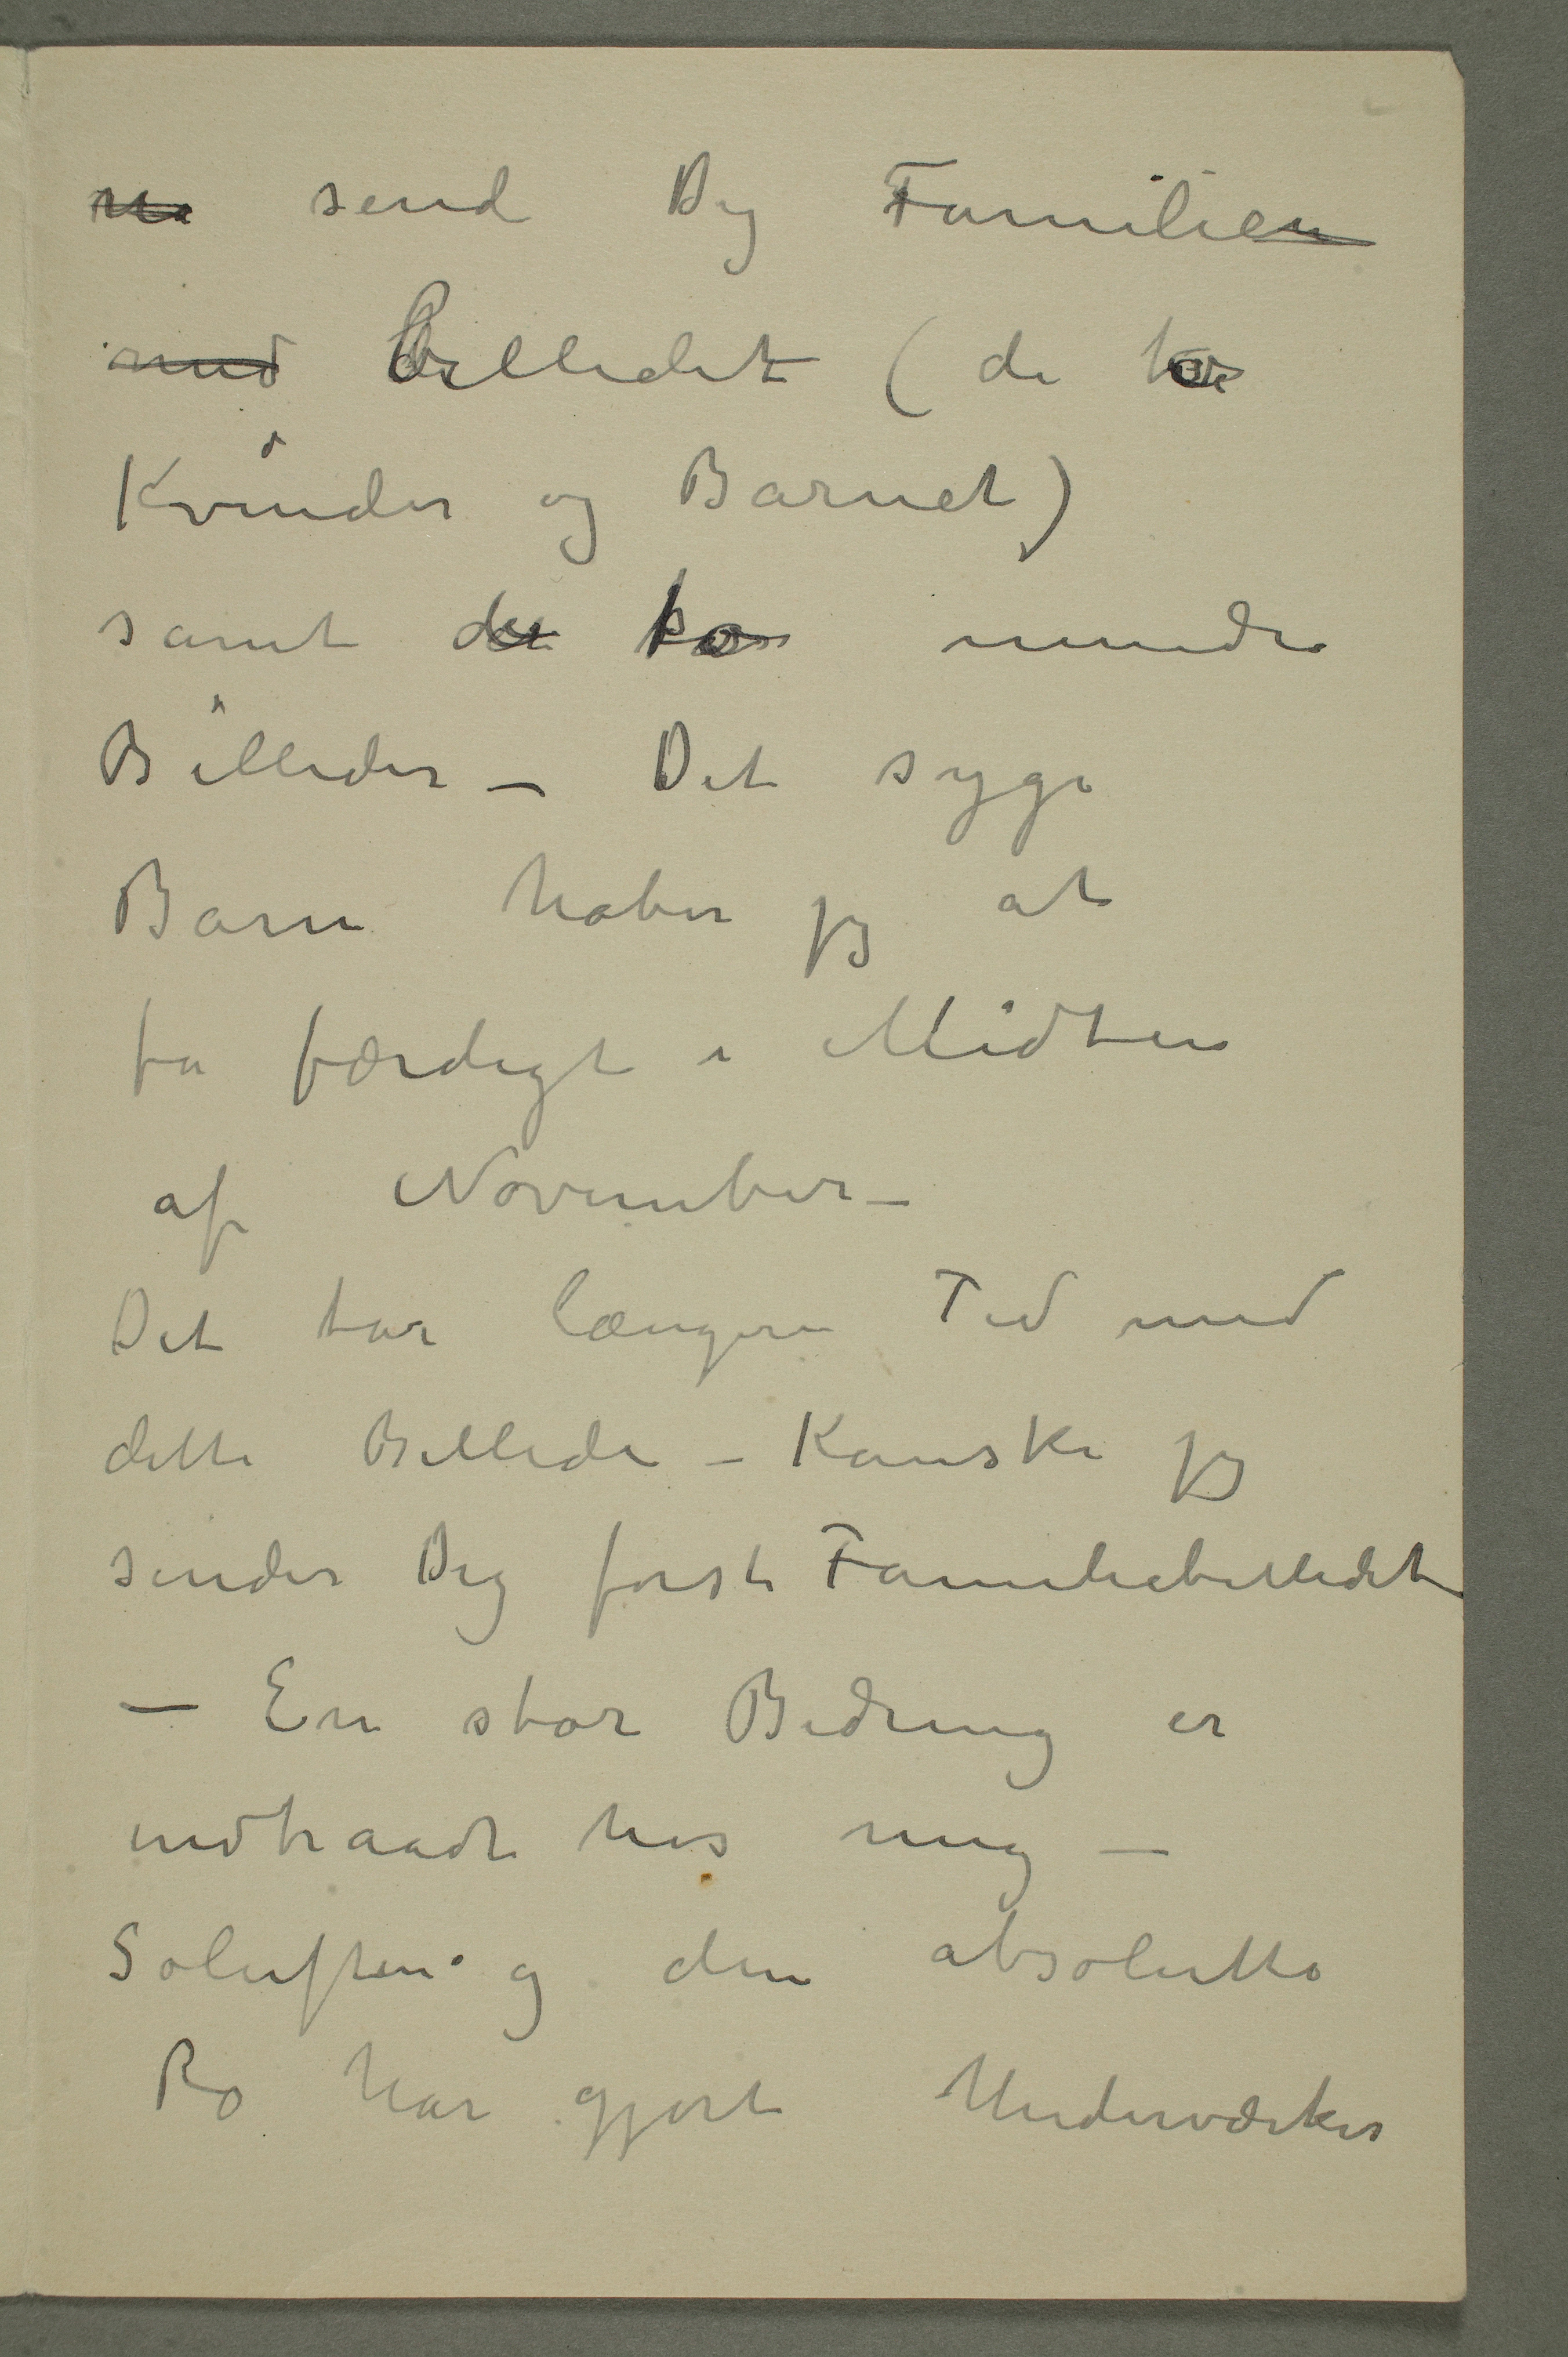 send Dig Familien
med billedet (de to
Kvinder og Barnet)
samt de to mindre
Billeder – Det syge
Barn haber jeg at
fa færdigt i Midten
af November –
Det tar længere Tid med
dette Billede – Kanske jeg
sender Dig først Familiebilledet
– En stor Bedring er
indtraadt hos mig –
Soluften og den absolutte
Ro har gjort Underværker